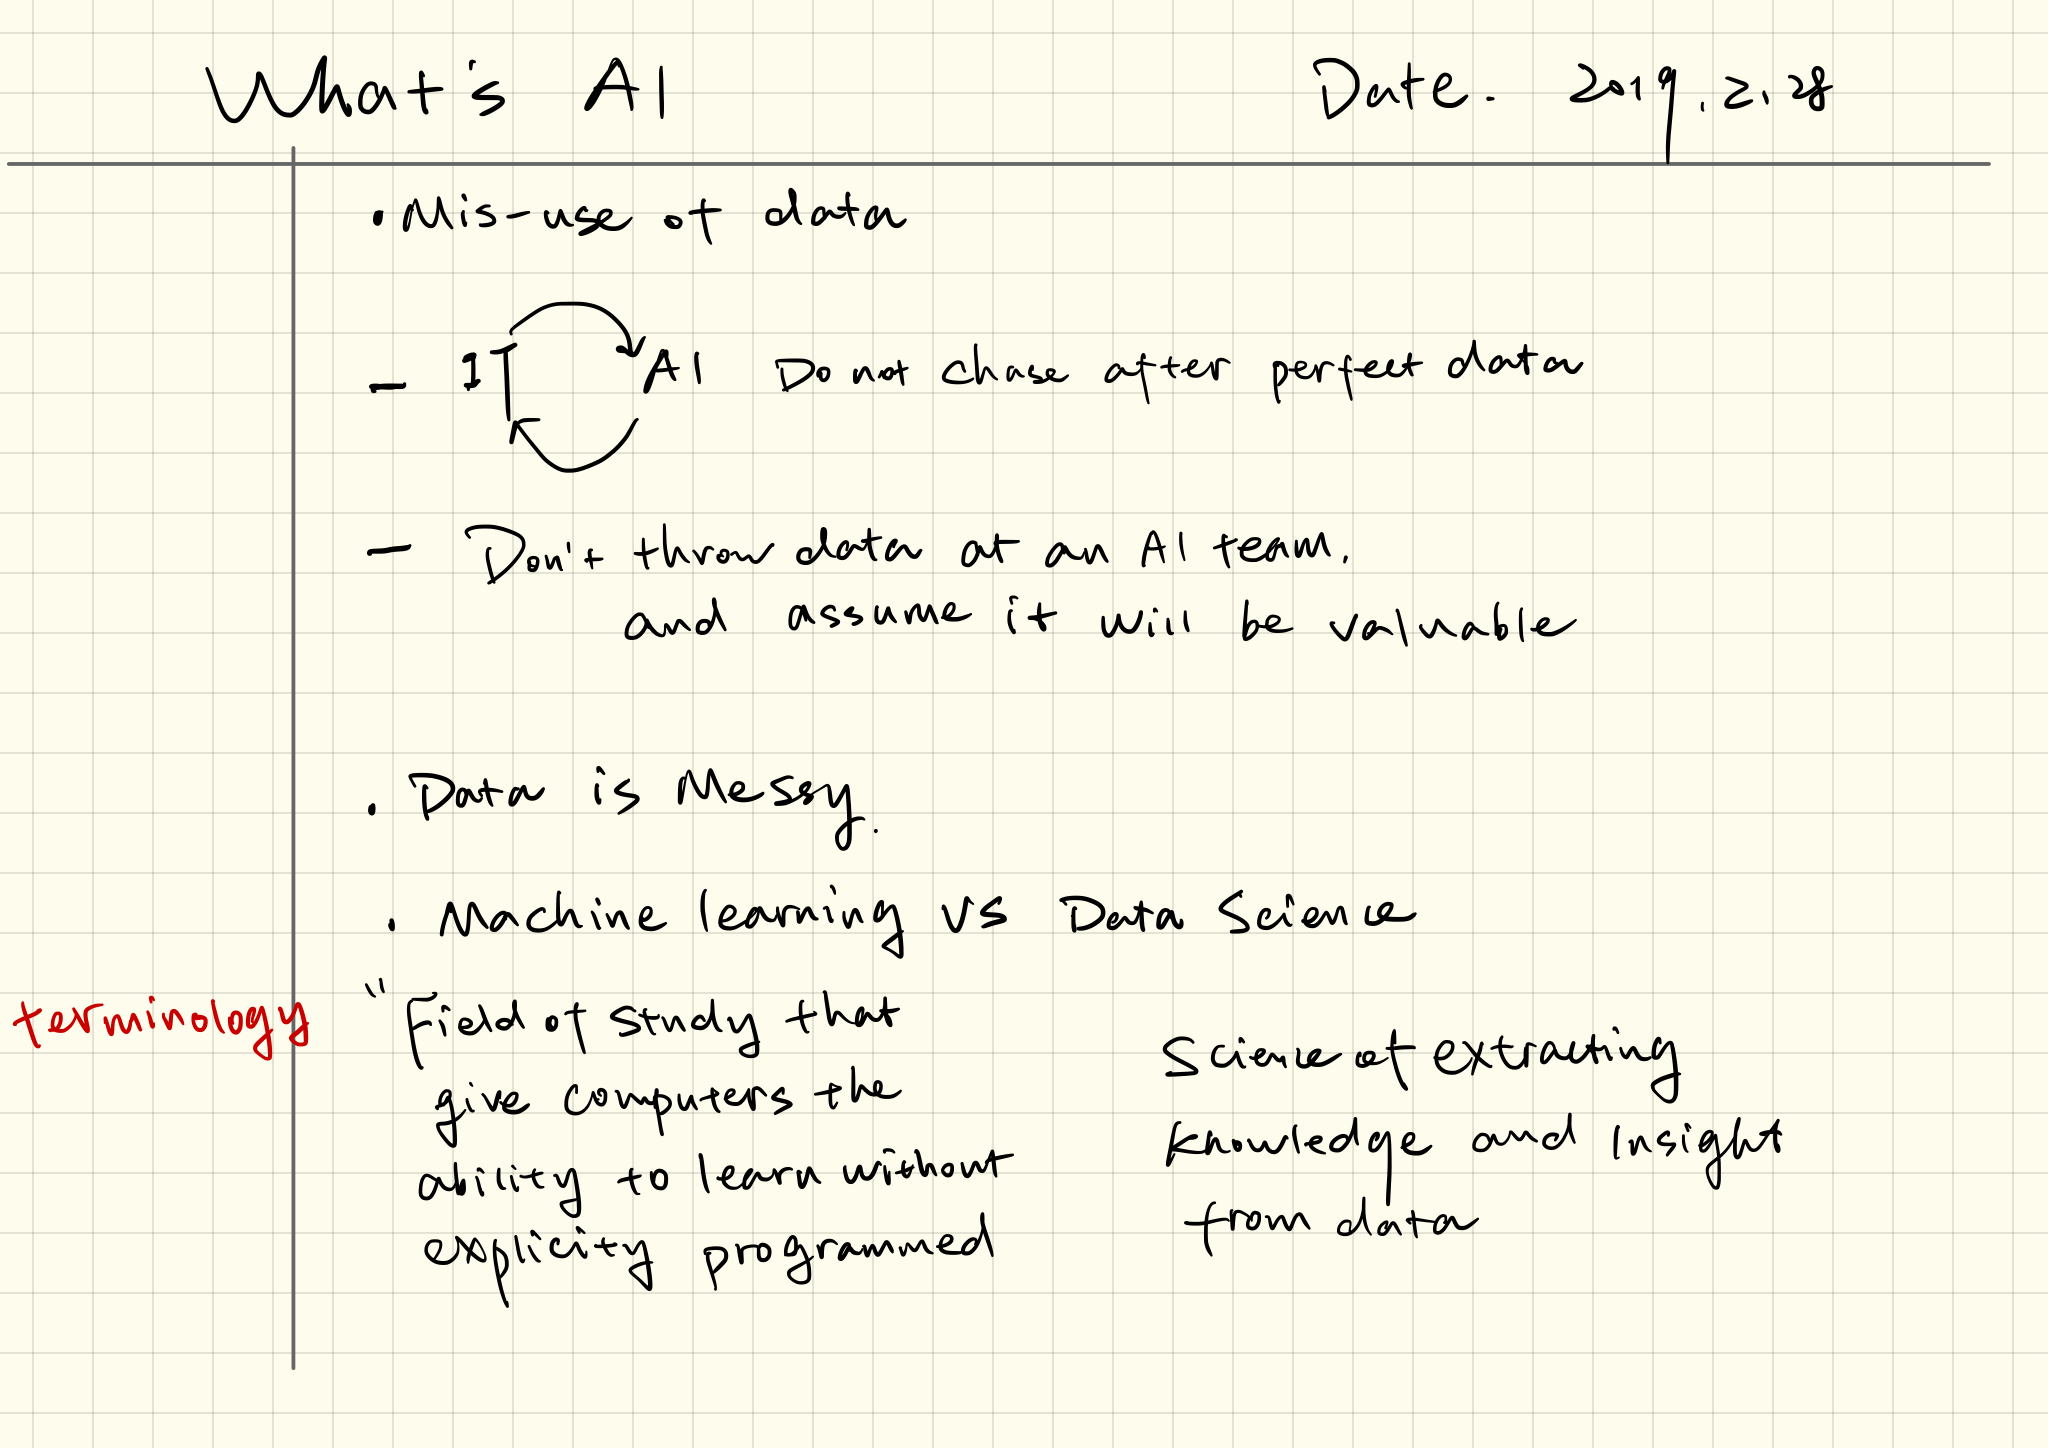 What's AI
Date. 2019.2.28
• Mis-use of data
— IT AI Do not chase after perfect data
— Don't throw data at an AI team.
and assume it will be valuable
• Data is Messy.
• Machine learning vs Data Science
terminology
"Field of study that
give computers the
ability to learn without
explicity programmed
Science of extracting
knowledge and Insight
from data